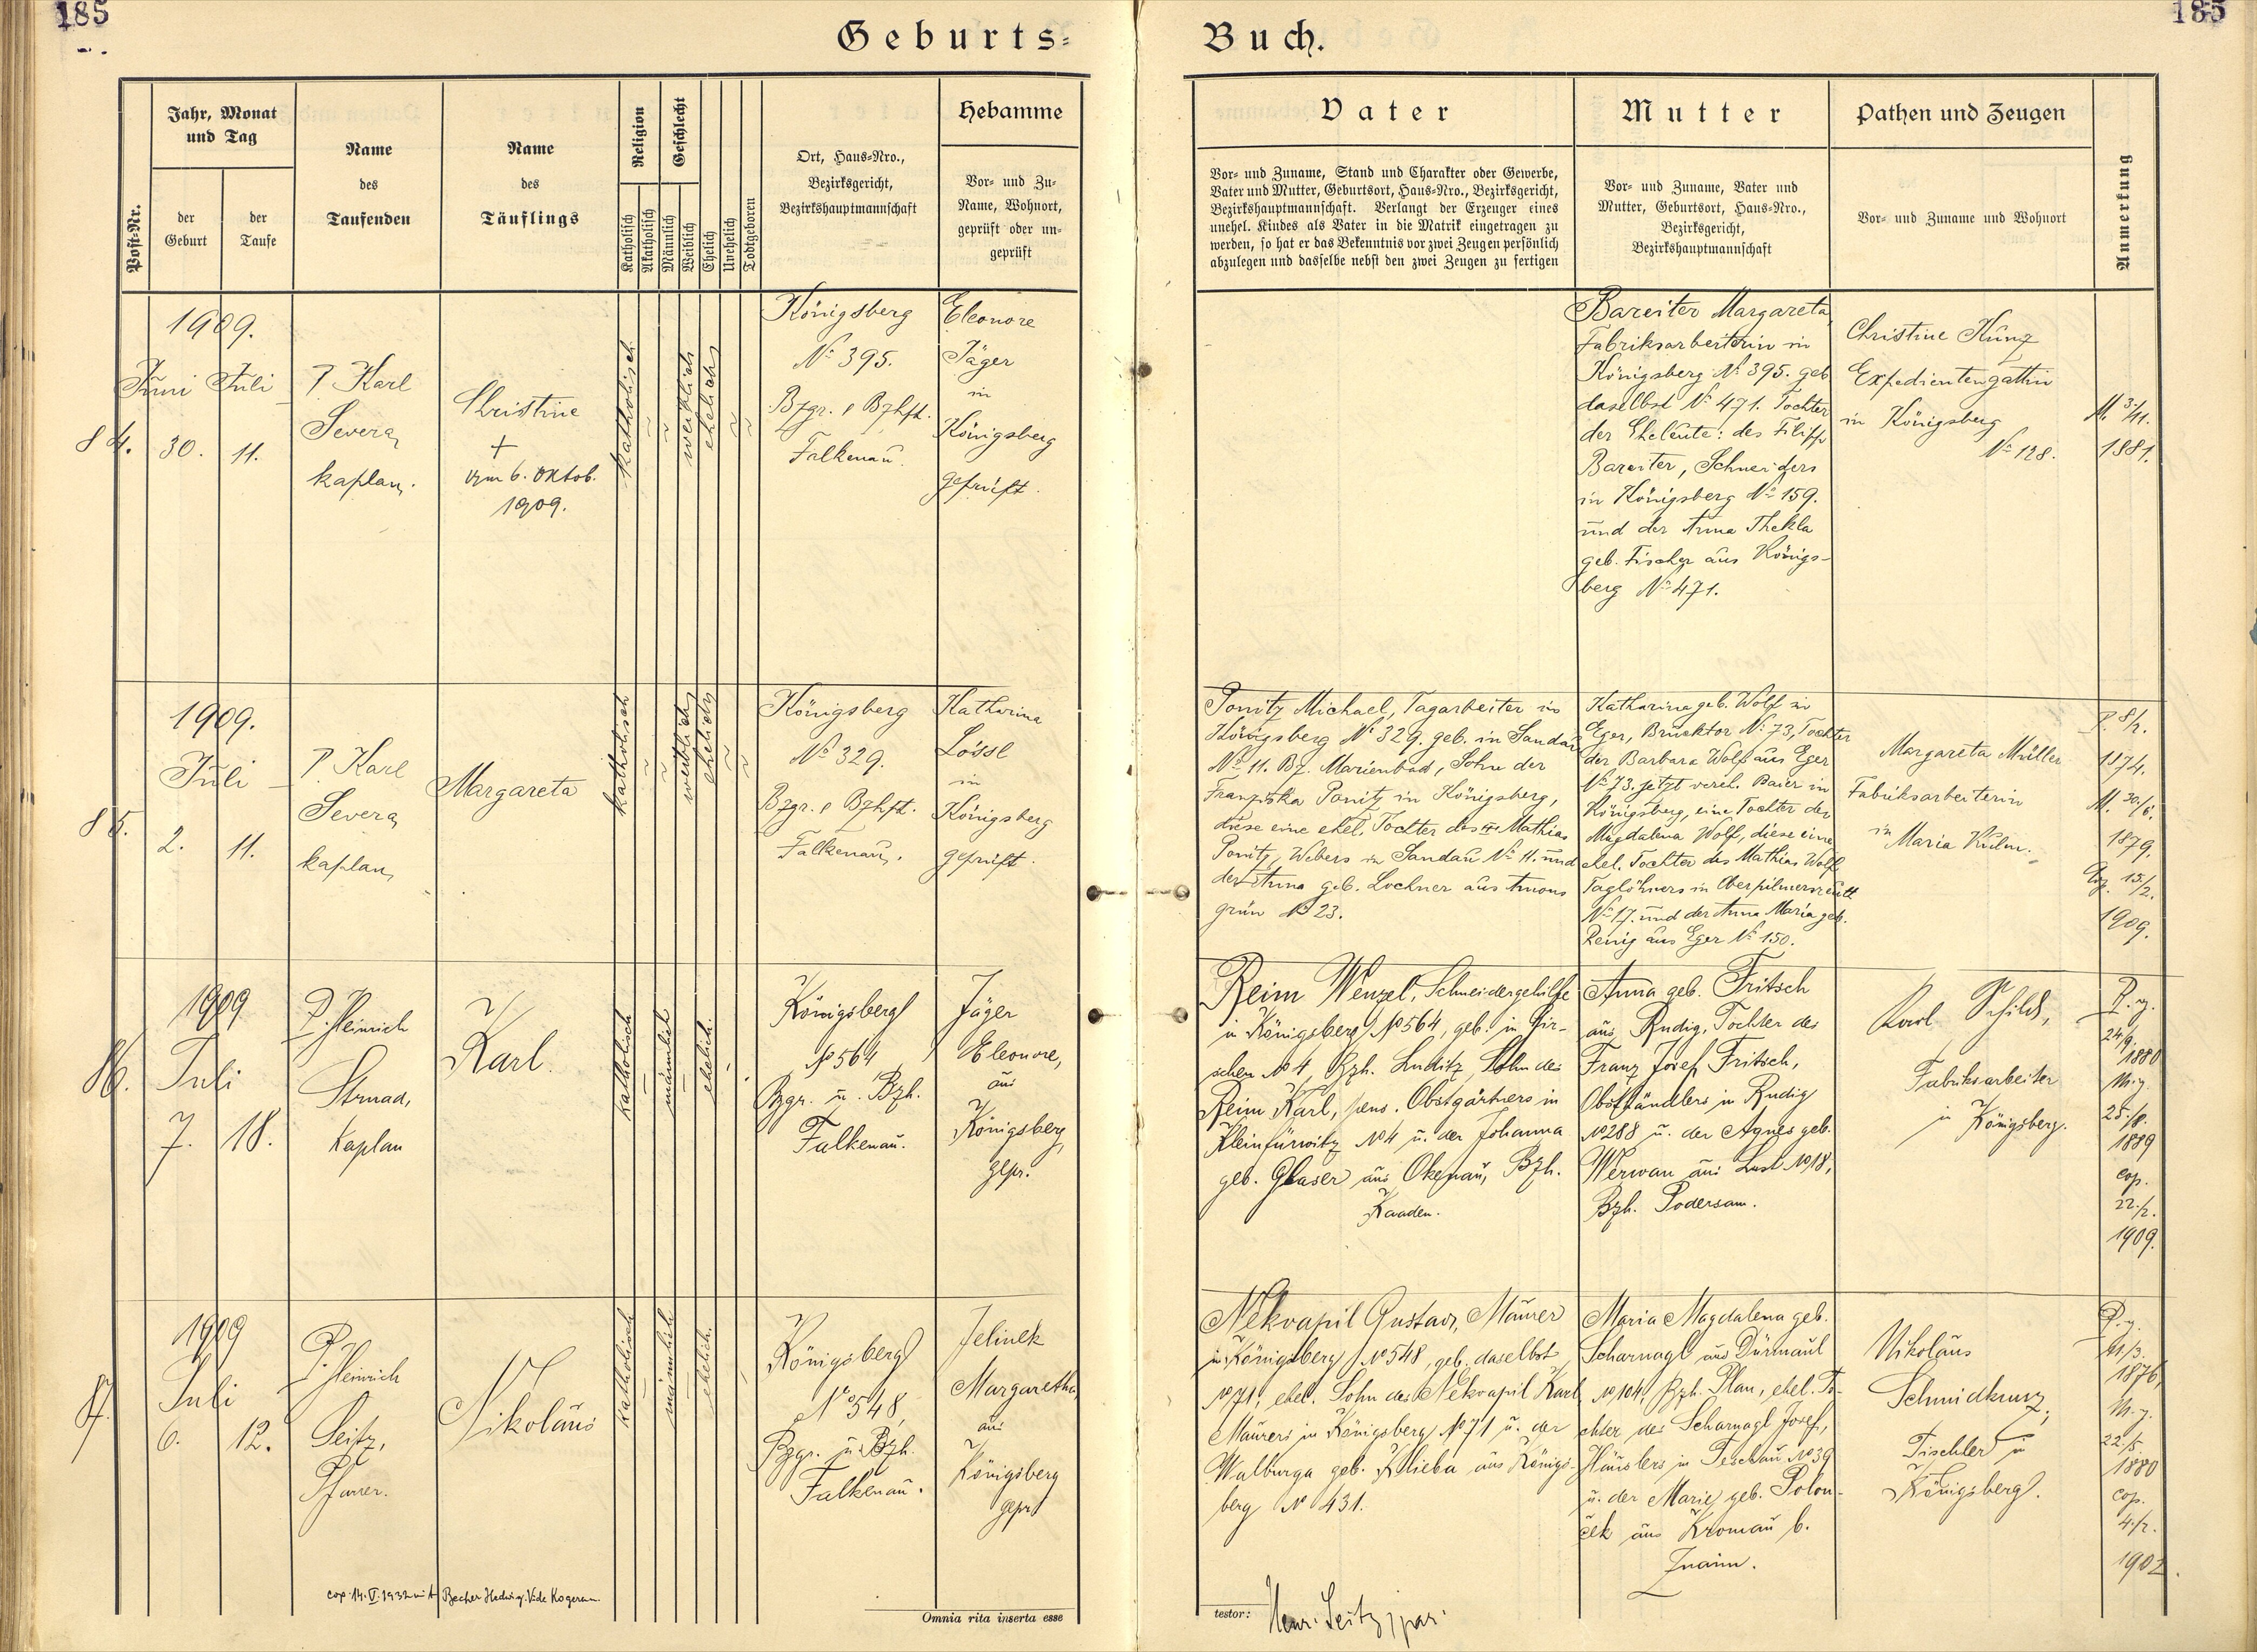 185
185
Geburts-
Buch.
Post-Nr.
Jahr, Monat
und Tag
der
Geburt
der
Taufe
Name
des
Taufenden
Name
des
Täuflings
Religion
Katholisch
Akatholisch
Geschlecht
Männlich
Weiblich
Ehelich
Unehelich
Todtgeboren
Ort, Haus-Nro.,
Bezirksgericht,
Bezirkshauptmannschaft
Hebamme
Vor- und Zu-
Name, Wohnort,
geprüft oder un-
geprüft
Vater
Vor- und Zuname, Stand und Charakter oder Gewerbe,
Vater und Mutter, Geburtsort, Haus-Nro., Bezirksgericht,
Bezirkshauptmannschaft. Verlangt der Erzeuger eines
unehel. Kindes als Vater in die Matrik eingetragen zu
werden, so hat er das Bekenntnis vor zwei Zeugen persönlich
abzulegen und dasselbe nebst den zwei Zeugen zu fertigen
Mutter
Vor- und Zuname, Vater und
Mutter, Geburtsort, Haus-Nro.,
Bezirksgericht,
Bezirkshauptmannschaft
Pathen und Zeugen
Vor- und Zuname und Wohnort
Anmerkung
84.
1909.
Juni Juli
30. 11.
P. Karl
Severa,
kaplan.
Christine
+
am 6. Oktob.
1909.
katholisch
weiblich
ehelich
Königsberg
No 395.
Bzgr. & Bzhft.
Falkenau.
Eleonore
Jäger
in
Königsberg
geprüft.
Bareiter Margareta,
Fabriksarbeiterin in
Königsberg No 395. geb
daselbst No 471. Tochter
der Eheleute: des Filipp
Bareiter, Schneiders
in Königsberg No 159.
und der Anna Thekla
geb. Fischer aus Königs-
berg No 471.
Christine Künz
Expedientengattin
in Königsberg
No 128.
M. 3./11.
1881.
85.
1909.
Juli
2. 11.
P. Karl
Severa,
kaplan,
Margareta
katholisch
weiblich
ehelich
Königsberg
No 329.
Bzgr. & Bzhft.
Falkenau.
Katharina
Lössl
in
Königsberg
geprüft.
Ponitz Michael, Tagarbeiter in
Königsberg No 329. geb. in Sandau
No 11. Bz. Marienbad, Sohn der
Franziska Ponitz in Königsberg,
diese eine ehel. Tochter des Mathias
Ponitz, Webers in Sandau No 11. und
der Anna geb. Lochner aus Amons
grün No 23.
Katharina geb. Wolf in
Eger, Brucktor No 73, Tochter
der Barbara Wolf aus Eger
No 73. jetzt vereh. Baier in
Königsberg, eine Tochter der
Magdalena Wolf, diese eine
ehel. Tochter des Mathias Wolf
Taglöhners in Oberpilmersreutt
No 17. und der Anna Maria geb.
Renig aus Eger No 150.
Margareta Müller
Fabriksarbeiterin
in Maria Kulm.
P. 8/2.
1874.
M. 30./6.
1879.
Cop. 15./2.
1909.
86.
1909
Juli
7. 18.
P. Heinrich
Strnad,
Kaplan
Karl.
katholisch
männlich
ehelich.
Königsberg
No 564
Bzgr. u. Bzh.
Falkenau.
Jäger
Eleonore,
aus
Königsberg,
gepr.
Reim Wenzel, Schneidergehilfe
in Königsberg No 564, geb. in Gir-
schen No 4, Bzh. Luditz, Sohn des
Reim Karl, pens. Obstgärtners in
Kleinfürwitz No 4 u. der Johanna
geb. Glaser aus Okenau, Bzh.
Kaaden.
Anna geb. Fritsch
aus Rudig, Tochter des
Franz Josef Fritsch,
Obsthändlers in Rudig
No 288 u. der Agnes geb.
Werwan aus Lust No 18,
Bzh. Podersam.
Karl Schild,
Fabriksarbeiter
in Königsberg.
P. g.
24/9.
1880
M. g.
25./8.
1889
cop.
22./2.
1909.
87.
1909
Juli
6. 12.
P. Heinrich
Seitz,
Pfarrer.
Nikolaus
katholisch
männlich
ehelich.
Königsberg
No 548,
Bzgr. u. Bzh.
Falkenau.
Jelinek
Margaretha,
aus
Königsberg
gepr.
Nekvapil Gustav, Maurer
in Königsberg No 548, geb. daselbst
No 71, ehel. Sohn des Nekvapil Karl
Maurers in Königsberg No 71 u. der
Walburga geb. Klieba aus Königs-
berg No 431.
Maria Magdalena geb.
Scharnagl aus Dürmaul
No 104, Bzh. Plan, ehel. To-
chter des Scharnagl Josef,
Häuslers in Teschau No 39
u. der Marie geb. Polon-
ček aus Kromau b.
Znaim.
Nikolaus
Schmidkunz,
Tischler in
Königsberg.
P. g.
11/3.
1876,
M. g.
22./5.
1880
cop.
4./2.
1902.
cop. 14. V. 1932 mit Becher Hedwig. Vide Kogerau.
Omnia rita inserta esse
testor: Henr. Seitz, par.